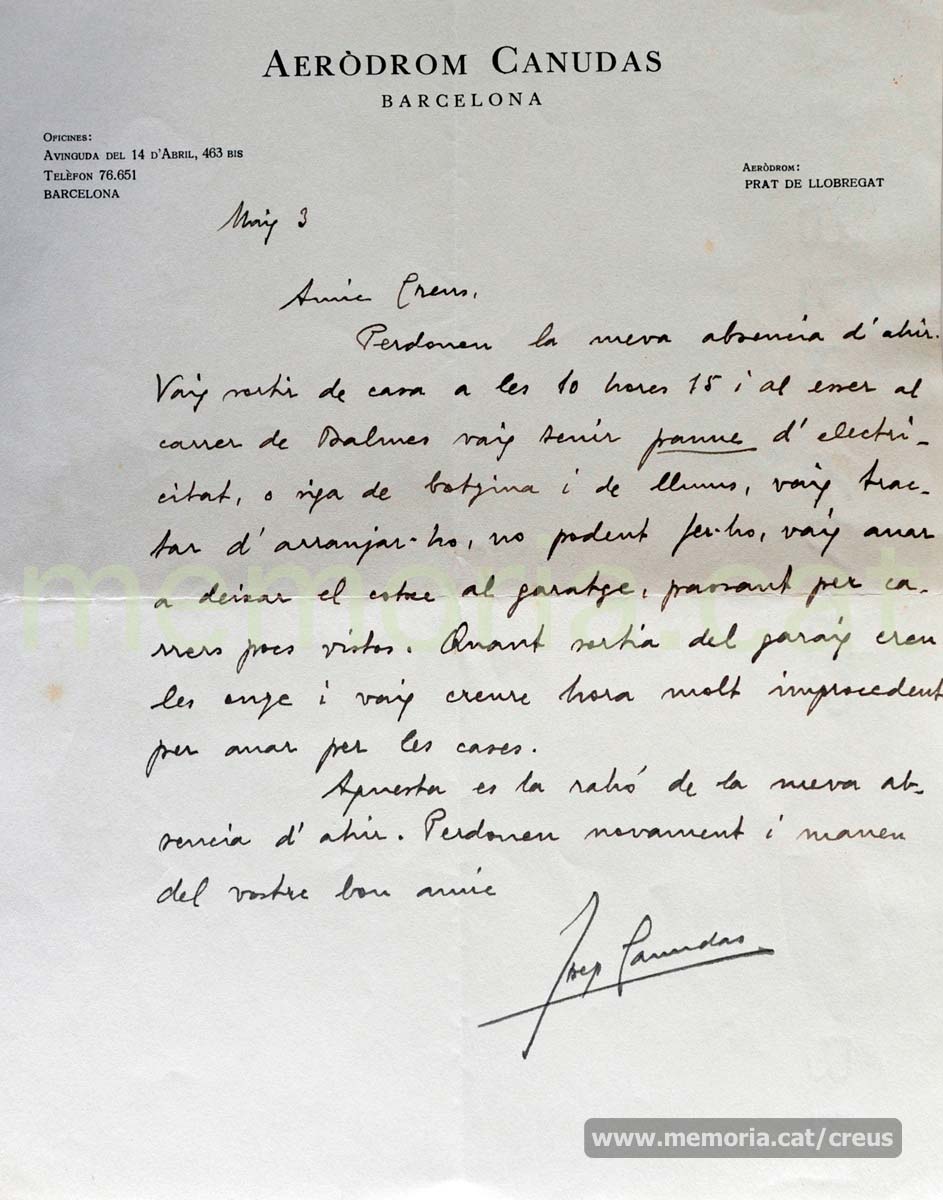 AERÒDROM CANUDAS
BARCELONA
OFICINES:
AVINGUDA DEL 14 D'ABRIL, 463 BIS
TELÈFON 76.651
BARCELONA
AERÒDROM:
PRAT DE LLOBREGAT
Maig 3
Amic Creus,
Perdoneu la meva absencia d'ahir.
Vaig sortir de casa a les 10 hores 15 i al esser al
carrer de Balmes vaig tenir panne d'electri-
citat, o siga de botzina i de llums, vaig trac-
tar d'arranjar-ho, no podent fer-ho, vaig anar
a deixar el cotxe al garatge, passant per ca-
rrers pocs vistos. Quant sortia del garaig eren
les onze i vaig creure hora molt improcedent
per anar per les cases.
Aquesta es la rahó de la meva ab-
sencia d'ahir. Perdoneu novament i maneu
del vostre bon amic
Josep Canudas
memoria.cat
www.memoria.cat/creus